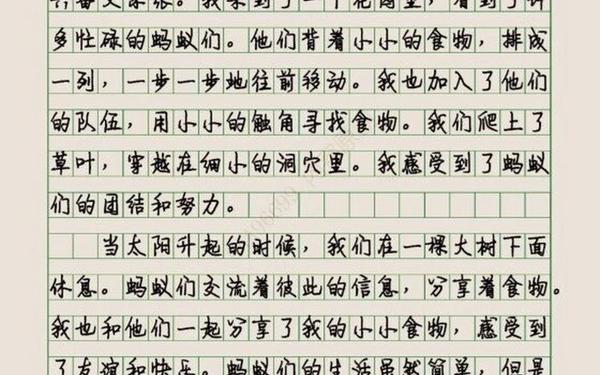 兴奋又紧张。我来到了一个花园里，看到了许
多忙碌的蚂蚁们。他们背着小小的食物，排成
一列，一步一步地往前移动。我也加入了他们
的队伍，用小小的触角寻找食物。我们爬上了
草叶，穿越在细小的洞穴里。我感受到了蚂蚁
们的团结和努力。
当太阳升起的时候，我们在一棵大树下面
休息。蚂蚁们交流着彼此的信息，分享着食物。
我也和他们一起分享了我的小小食物，感受到
了友谊和快乐。蚂蚁们的生活虽然简单，但是